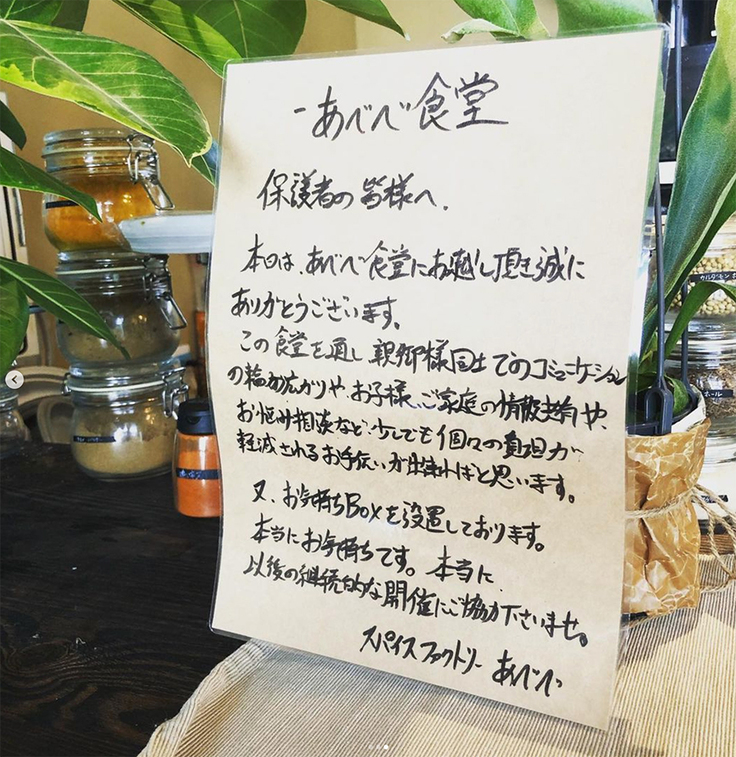 -あべべ食堂
保護者の皆様へ.
本日は、あべべ食堂にお越し頂き誠に
ありがとうございます。
この食堂を通し親御様同士でのコミュニケーション
の輪の広がりや、お子様、ご家庭の情報共有や、
お悩み相談など、少しでも個々の負担が
軽減されるお手伝いが出来ればと思います。
又、お気持ちBoxを設置しております。
本当にお気持ちです。本当に、
以後の継続的な開催にご協力下さいませ。
スパイスファクトリー あべべ
ホール